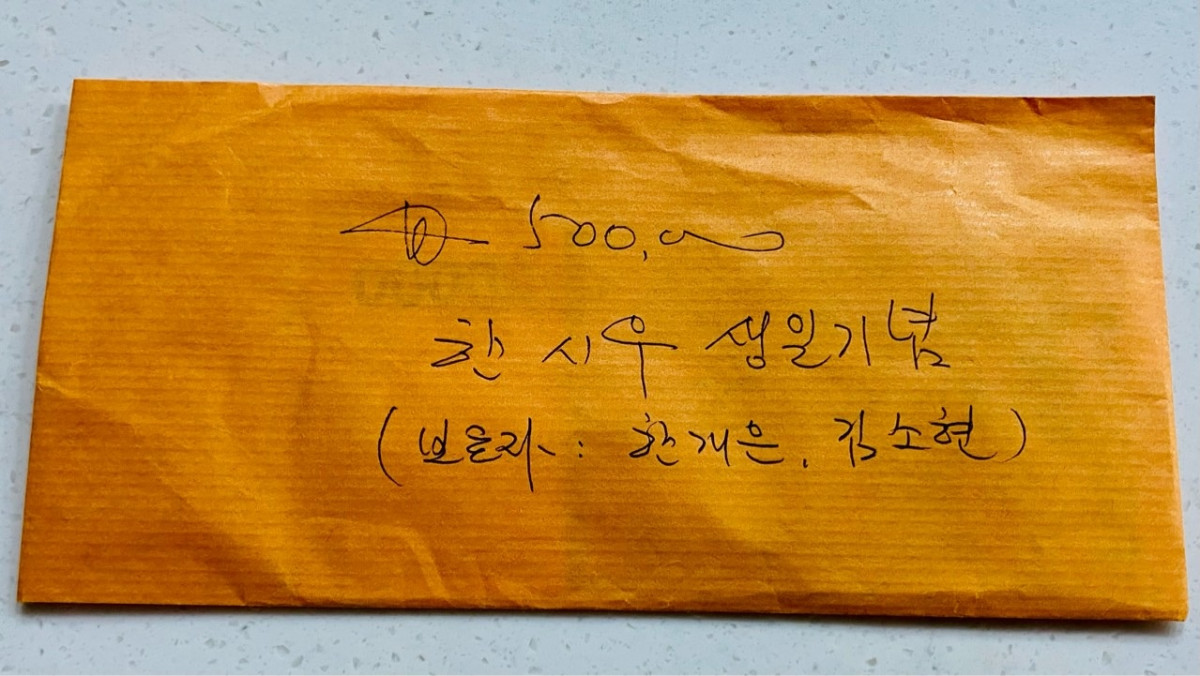 ₩ 500,000
한 시우 생일기념
(보은자: 한개은, 김소현)